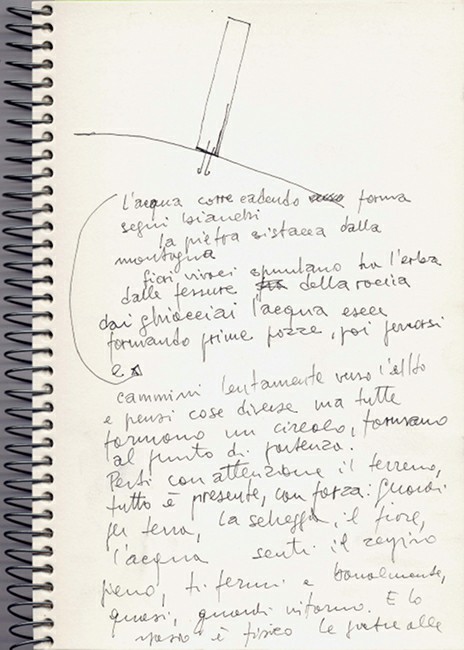 L'acqua corre cadendo forma
segni bianchi
la pietra si stacca dalla
montagna
fiori vivaci spuntano tra l'erba
dalle fessure della roccia
dai ghiacciai l'acqua esce
formando prime pozze, poi
e
cammini lentamente verso l'alto
e pensi cose diverse ma tutte
formano un circolo, tornano
al punto di partenza.
Perti con attenzione il terreno,
tutto è presente, con forza: Guardi
per terra, la scheggia, il fiore,
l'acqua senti il respiro
pieno, ti fermi e banalmente,
quasi, guardi intorno. E lo
spazio è fisico le pietre alle